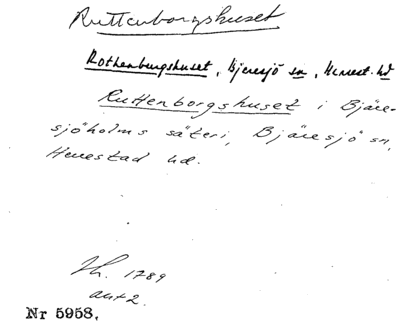 Ruttenborgshuset
Rothenburgshuset, Bjeresjö sn, Herrest. hd
Ruttenborgshuset i Bjäre-
sjöholms säteri, Bjäresjö sn,
Herrestad hd.
1789
Nr 5958.